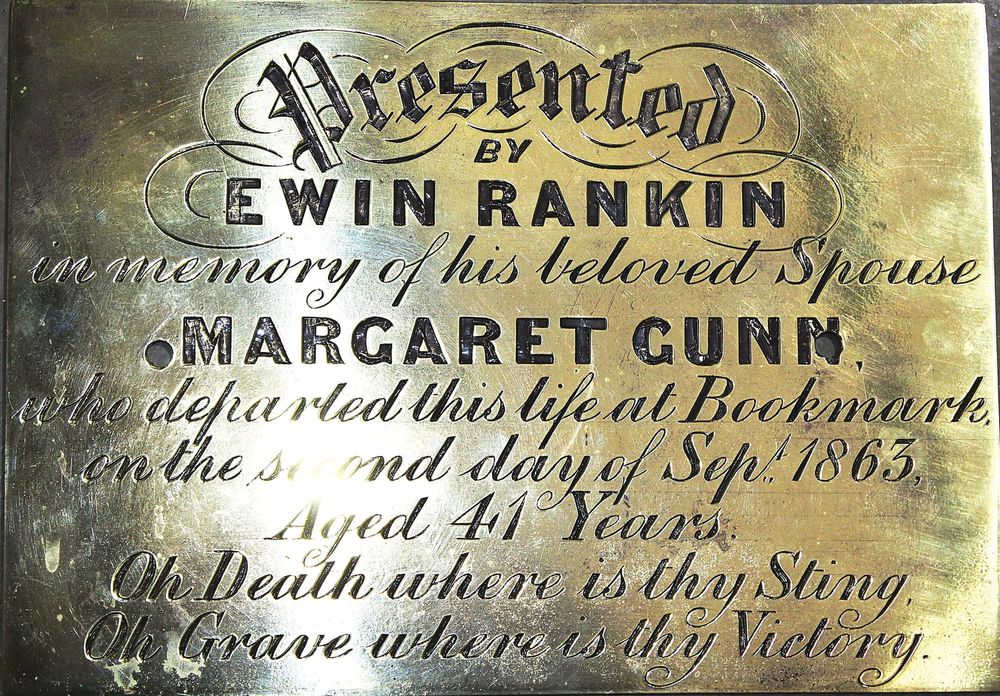 Presented
BY
EWIN RANKIN
in memory of his beloved Spouse
MARGARET GUNN,
who departed this life at Bookmark,
on the second day of Sept. 1863,
Aged 41 Years.
Oh Death where is thy Sting,
Oh Grave where is thy Victory.